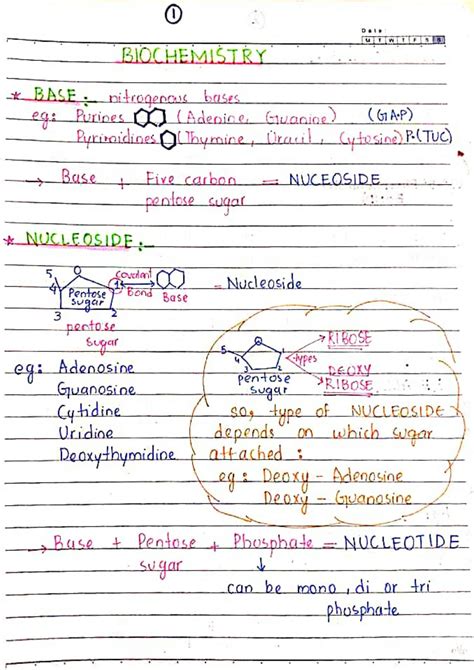 1
Date:
M T W T F S S
BIOCHEMISTRY
* BASE:- nitrogenous bases
eg: Purines (Adenine, Guanine) (GAP)
Pyrimidines (Thymine, Uracil, Cytosine) P-(TUC)
→ Base + Five carbon = NUCEOSIDE
pentose sugar
* NUCLEOSIDE:-
5 4 O Pentose sugar 1 3 2 Covalent Bond Base = Nucleoside
pentose
sugar
5 4 O 1 3 2 types RIBOSE
DEOXY
RIBOSE
pentose
sugar
eg: Adenosine
Guanosine
Cytidine
Uridine
Deoxythymidine
so, type of NUCLEOSIDE
depends on which sugar
attached:
eg: Deoxy - Adenosine
Deoxy - Guanosine
→ Base + Pentose + Phosphate = NUCLEOTIDE
sugar ↓
can be mono, di or tri
phosphate